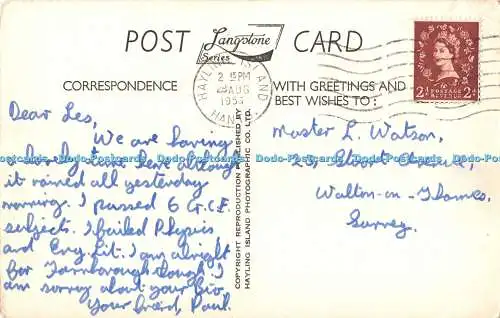 POST Langstone Series CARD
HAYLING ISLAND
2 15PM
AUG
HANTS
2D POSTAGE REVENUE 2D
CORRESPONDENCE
WITH GREETINGS AND
BEST WISHES TO:
Dear Les,
We are having
a lovely time here although
it rained all yesterday
morning. I passed 6 G.C.E.
subjects. I failed Physics
and Eng. Lit. I am alright
for Farnborough though. I am
sorry about your Bio.
Your friend, Paul.
COPYRIGHT REPRODUCTION PUBLISHED BY
HAYLING ISLAND PHOTOGRAPHIC CO. LTD.
Master L. Watson,
Walton-on-Thames,
Surrey.
Dodo-Postcards Dodo-Postcards Dodo-Postcards Dodo-Postcards Dodo-Postcards Dodo-Postcards